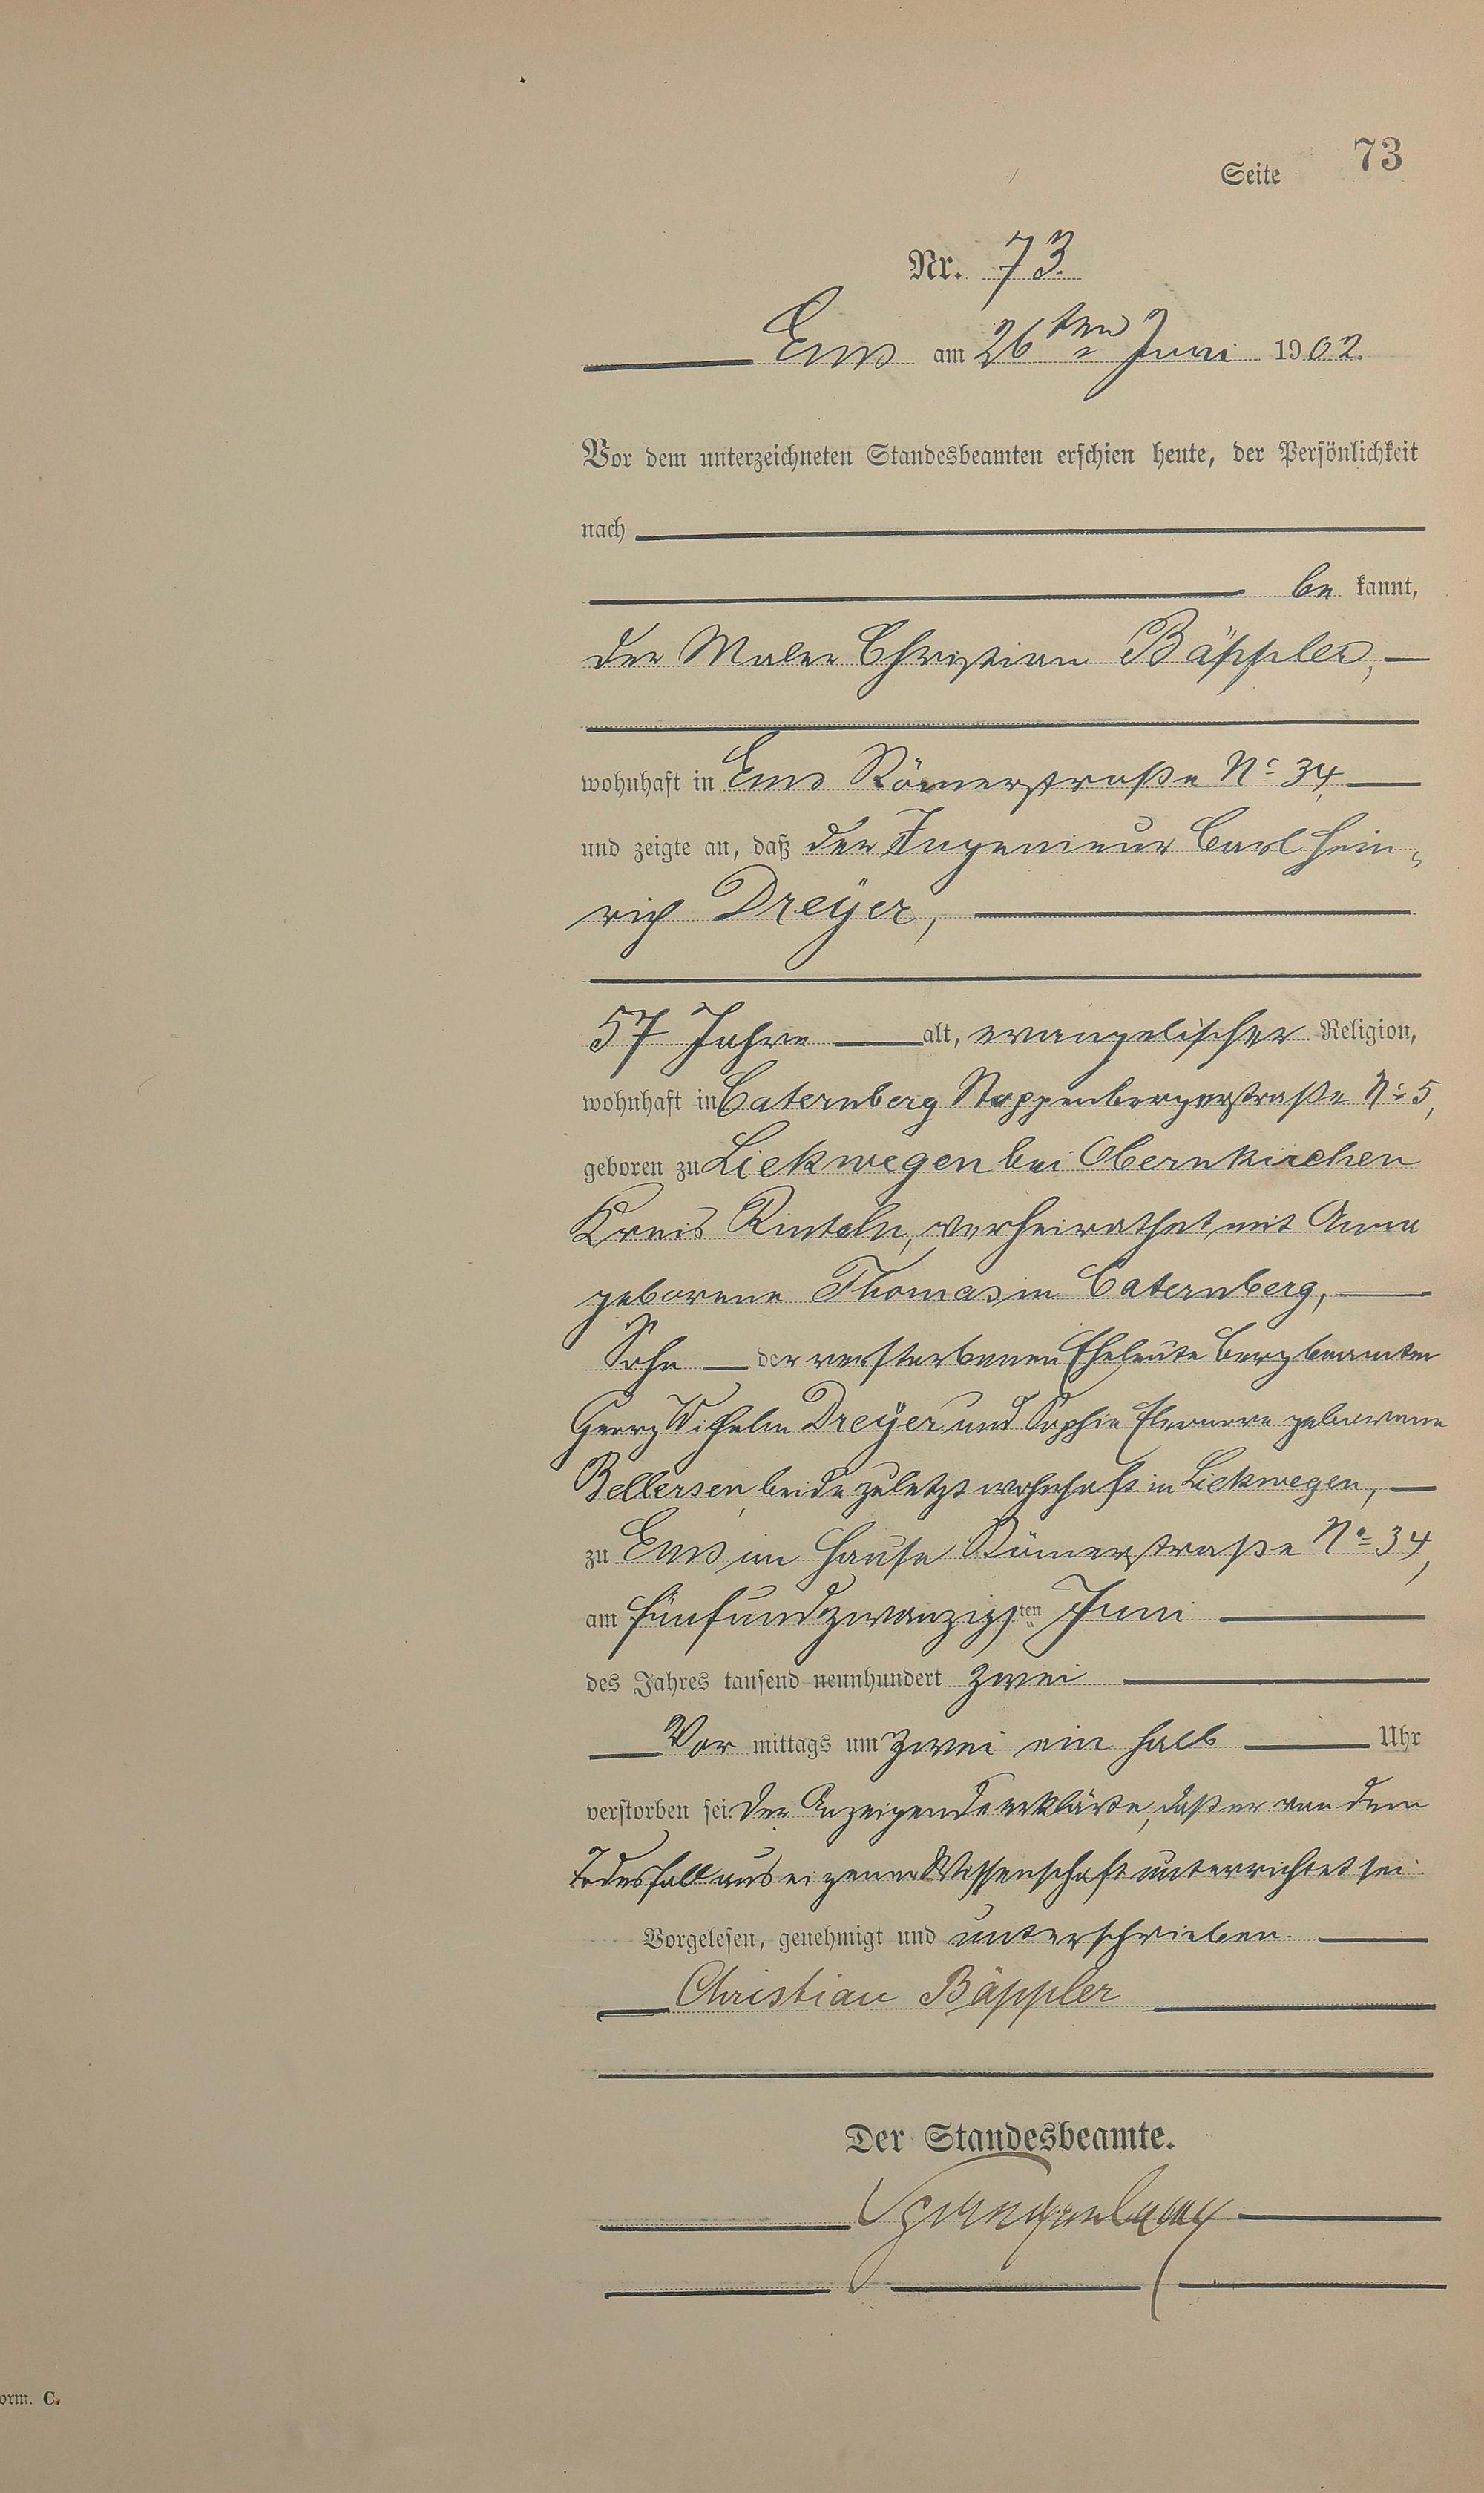 Seite 73
Nr. 73.
Ems am 26ten Juni 1902.
Vor dem unterzeichneten Standesbeamten erschien heute, der Persönlichkeit
nach
be kannt,
der Maler Christian Bäppler,
wohnhaft in Ems Römerstraße No 34,
und zeigte an, daß der Ingenieur Carl Hein-
rich Dreÿer,
57 Jahre alt, evangelischer Religion,
wohnhaft in Caternberg Stoppenbergerstraße No 5,
geboren zu Liekwegen bei Obernkirchen
Kreis Rinteln, verheirathet mit Anna
geborene Thomas in Caternberg,
Sohn der verstorbenen Eheleute Bergbeamten
Georg Wilhelm Dreÿer und Sophie Eleonore geborene
Bellersen, beide zuletzt wohnhaft in Liekwegen,
zu Ems im Hause Römerstraße No 34,
am fünfundzwanzigsten Juni
des Jahres tausend neunhundert zwei
Vor mittags um zwei ein halb Uhr
verstorben sei. Der Anzeigende erklärte, daß er von dem
Todesfall aus eigener Wissenschaft unterrichtet sei.
Vorgelesen, genehmigt und unterschrieben.
Christian Bäppler
Der Standesbeamte.
orm. C.